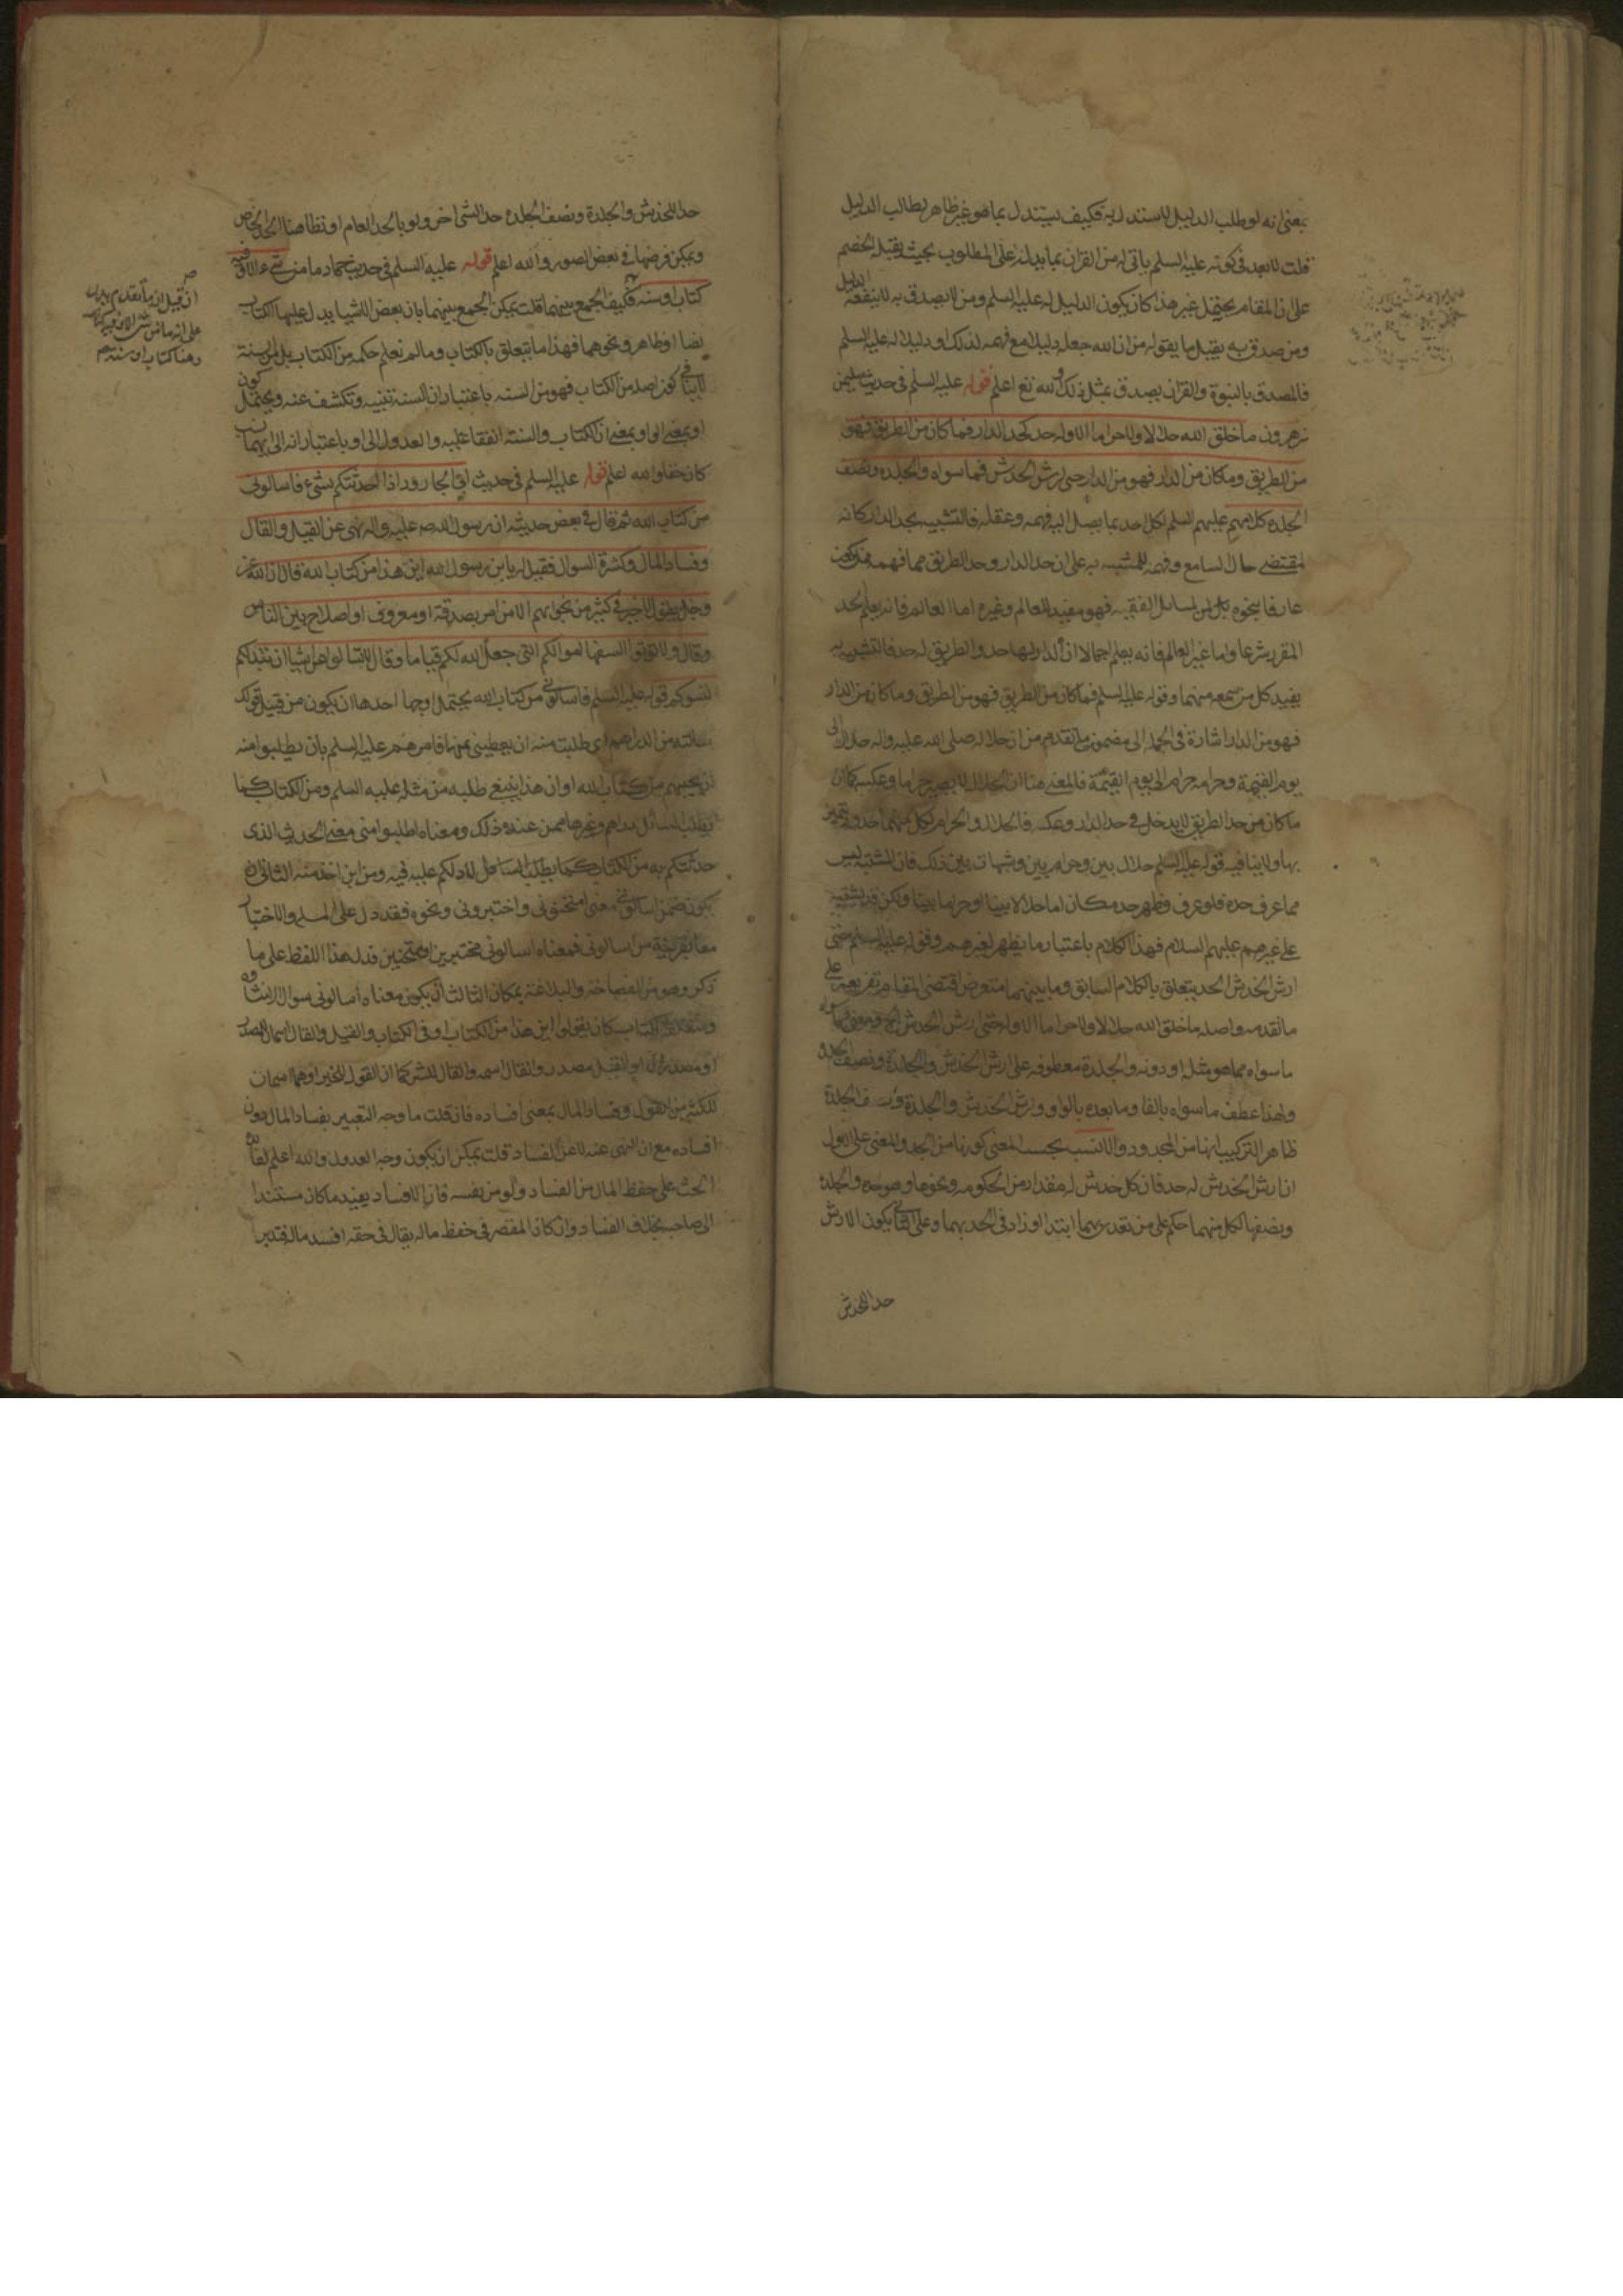 بمعنى انه لو طلب الدليل لاستدل به فكيف يستدل بما هو غير ظاهر لطالب الدليل
قلت لا بعد في كونه عليه السلم ياتي له من القران بما يدله على المطلوب بحيث يقبله الخصم
على ان المقام يحتمل غير هذا كان يكون الدليل له عليه السلم ومن لا يصدق به لا ينفعه الدليل
ومن صدق به يقبل ما يقوله من ان الله جعله دليلا مع فهمه لذلك او دليلا له عليه السلم
فالمصدق بالنبوة والقران يصدق بمثل ذلك والله تع اعلم قوله عليه السلم في حديث سليمن
بن هرون ما خلق الله حلالا ولا حراما الا وله حد كحد الدار فما كان من الطريق فهو
من الطريق وما كان من الدار فهو من الدار حتى ارش الخدش فما سواه والجلدة ونصف
الجلدة كلامهم عليهم السلم لكل احد بما يصل اليه فهمه وعقله فالتشبيه بحد الدار كانه
لمقتضى حال السامع وفهمه للمشبه به على ان حد الدار وحد الطريق مما فهمه
المقرر شرعا واما غير العالم فانه يعلم اجمالا ان الدار لها حد والطريق له حد فالتشبيه به
يفيد كل من سمعه منهما وقوله عليه السلم فما كان من الطريق فهو من الطريق وما كان من الدار
فهو من الدار اشارة في الجملة الى مضمون ما تقدم من ان حلاله صلى الله عليه واله حلال الى
يوم القيمة وحرامه حرام الى يوم القيمة فالمعنى هنا ان الحلال لا يصير حراما وعكسه كما ان
ما كان من حد الطريق لا يدخل في حد الدار وعكسه فالحلال والحرام لكل منهما حدود يتميز
بها ولا ينافيه قوله عليه السلم حلال بين وحرام بين وشبهات بين ذلك فان المشتبه ليس
مما عرف حده فلو عرف وظهر حده كان اما حلالا بينا او حراما بينا ولكن قد يشتبه
على غيرهم عليهم السلام فهذا الكلام باعتبار ما يظهر لغيرهم وقوله عليه السلم حتى
ارش الخدش الحد يتعلق بالكلام السابق وما بينهما معترض اقتضى المقام تفريعه على
ما تقدمه واصله ما خلق الله حلالا ولا حراما الا وله حد حتى ارش الخدش
ما سواه مما هو مثله او دونه والجلدة معطوفه على ارش الخدش والجلدة ونصف الجلدة
ولهذا عطف ما سواه بالفا وما بعده بالواو وارش الخدش والجلدة ونصف الجلدة
ظاهر التركيب انها من المحدود والانسب بحسب المعنى كونها من الحد والمعنى على الاول
ان ارش الخدش له حد فان كل خدش له مقدار من الحكومه ونحوها وهو حده والجلدة
ونصفها لكل منهما حكم على من تعدى بهما ابتدا او زاد في الحد بهما وعلى الثاني يكون الارش
حد الخدش
حدا للخدش والجلدة ونصف الجلده حد الشي اخر ولو بالحد العام او نظاهنا الحد الخاص
ويمكن فرضها في بعض الصور والله اعلم قوله عليه السلم في حديث حماد ما من شيء الا وفيه
كتاب او سنه فكيف الجمع بينهما قلت يمكن الجمع بينهما بان بعض الاشيا يدل عليها الكتاب
نصا او ظاهر ونحوهما فهذا ما يتعلق بالكتاب وما لم نعلم حكمه من الكتاب بل من السنة
لا ينافي كون اصله من الكتاب فهو من السنه باعتبار ان السنه تبينه وتكشف عنه ويحتمل كون
او بمعنى الواو بمعنى ان الكتاب والسنة اتفقا عليه والعدول الى او باعتبار انه الى ايهما نسب
كان حقا والله اعلم قوله عليه السلم في حديث ابي الجارود اذا حدثتكم بشيء فاسالوني
من كتاب الله ثم قال في بعض حديثه ان رسول الله صلى الله عليه واله نهى عن القيل والقال
وفساد المال وكثرة السوال فقيل له يا بن رسول الله اين هذا من كتاب الله قال ان الله عز
وجل يقول لا خير في كثير من نجواهم الا من امر بصدقة او معروف او اصلاح بين الناس
وقال ولا تؤتوا السفها اموالكم التي جعل الله لكم قياما وقال لا تسالوا عن اشيا ان تبد لكم
تسوكم قوله عليه السلم فاسالوني من كتاب الله يحتمل اوجها احدها ان يكون من قبيل قولك
سالته من الدراهم اي طلبت منه ان يعطيني منها فامرهم عليه السلم بان يطلبوا منه
ان يجيبهم من كتاب الله او ان هذا ينبغي طلبه من مثله عليه السلم ومن الكتاب كما
يطلب السائل دراهم وغيرها ممن عنده ذلك ومعناه اطلبوا مني معنى الحديث الذي
حدثتكم به من الكتاب كما يطلب السائل لادلكم عليه فيه ومن اين اخذ منه الثاني ان
يكون ضمن اسالوني معنى امتحنوني واختبروني ونحوه فقد دل على السوال والاختبار
معا بقرينة من اسالوني فمعناه اسالوني مختبرين وممتحنين فدل هذا اللفظ على ما
ذكر وهو من الفصاحة والبلاغة بمكان الثالث ان يكون معناه اسالوني سوالا منشاؤه
كتاب كان يقولوا اين هذا من الكتاب او في الكتاب والقيل والقال اسمان للمصدر
او مصدران او القيل مصدر والقال اسمه والقال للشر كما ان القول للخير او هما اسمان
للكثير من القول وفساد المال بمعنى افساده فان قلت ما وجه التعبير بفساد المال دون
افساده مع ان النهي عنه لا عن الفساد قلت يمكن ان يكون وجه العدول والله اعلم افادة
الحث على حفظ المال من الفساد ولو من نفسه فان الافساد يفيد ما كان مستندا
الى صاحبه بخلاف الفساد وان كان المقصر في حفظ ماله يقال في حقه افسد ماله فتدبر
ان قيل ان ما تقدم يدل
على انه ما من شي الا وفيه كتاب
وهنا كتاب او سنة صح